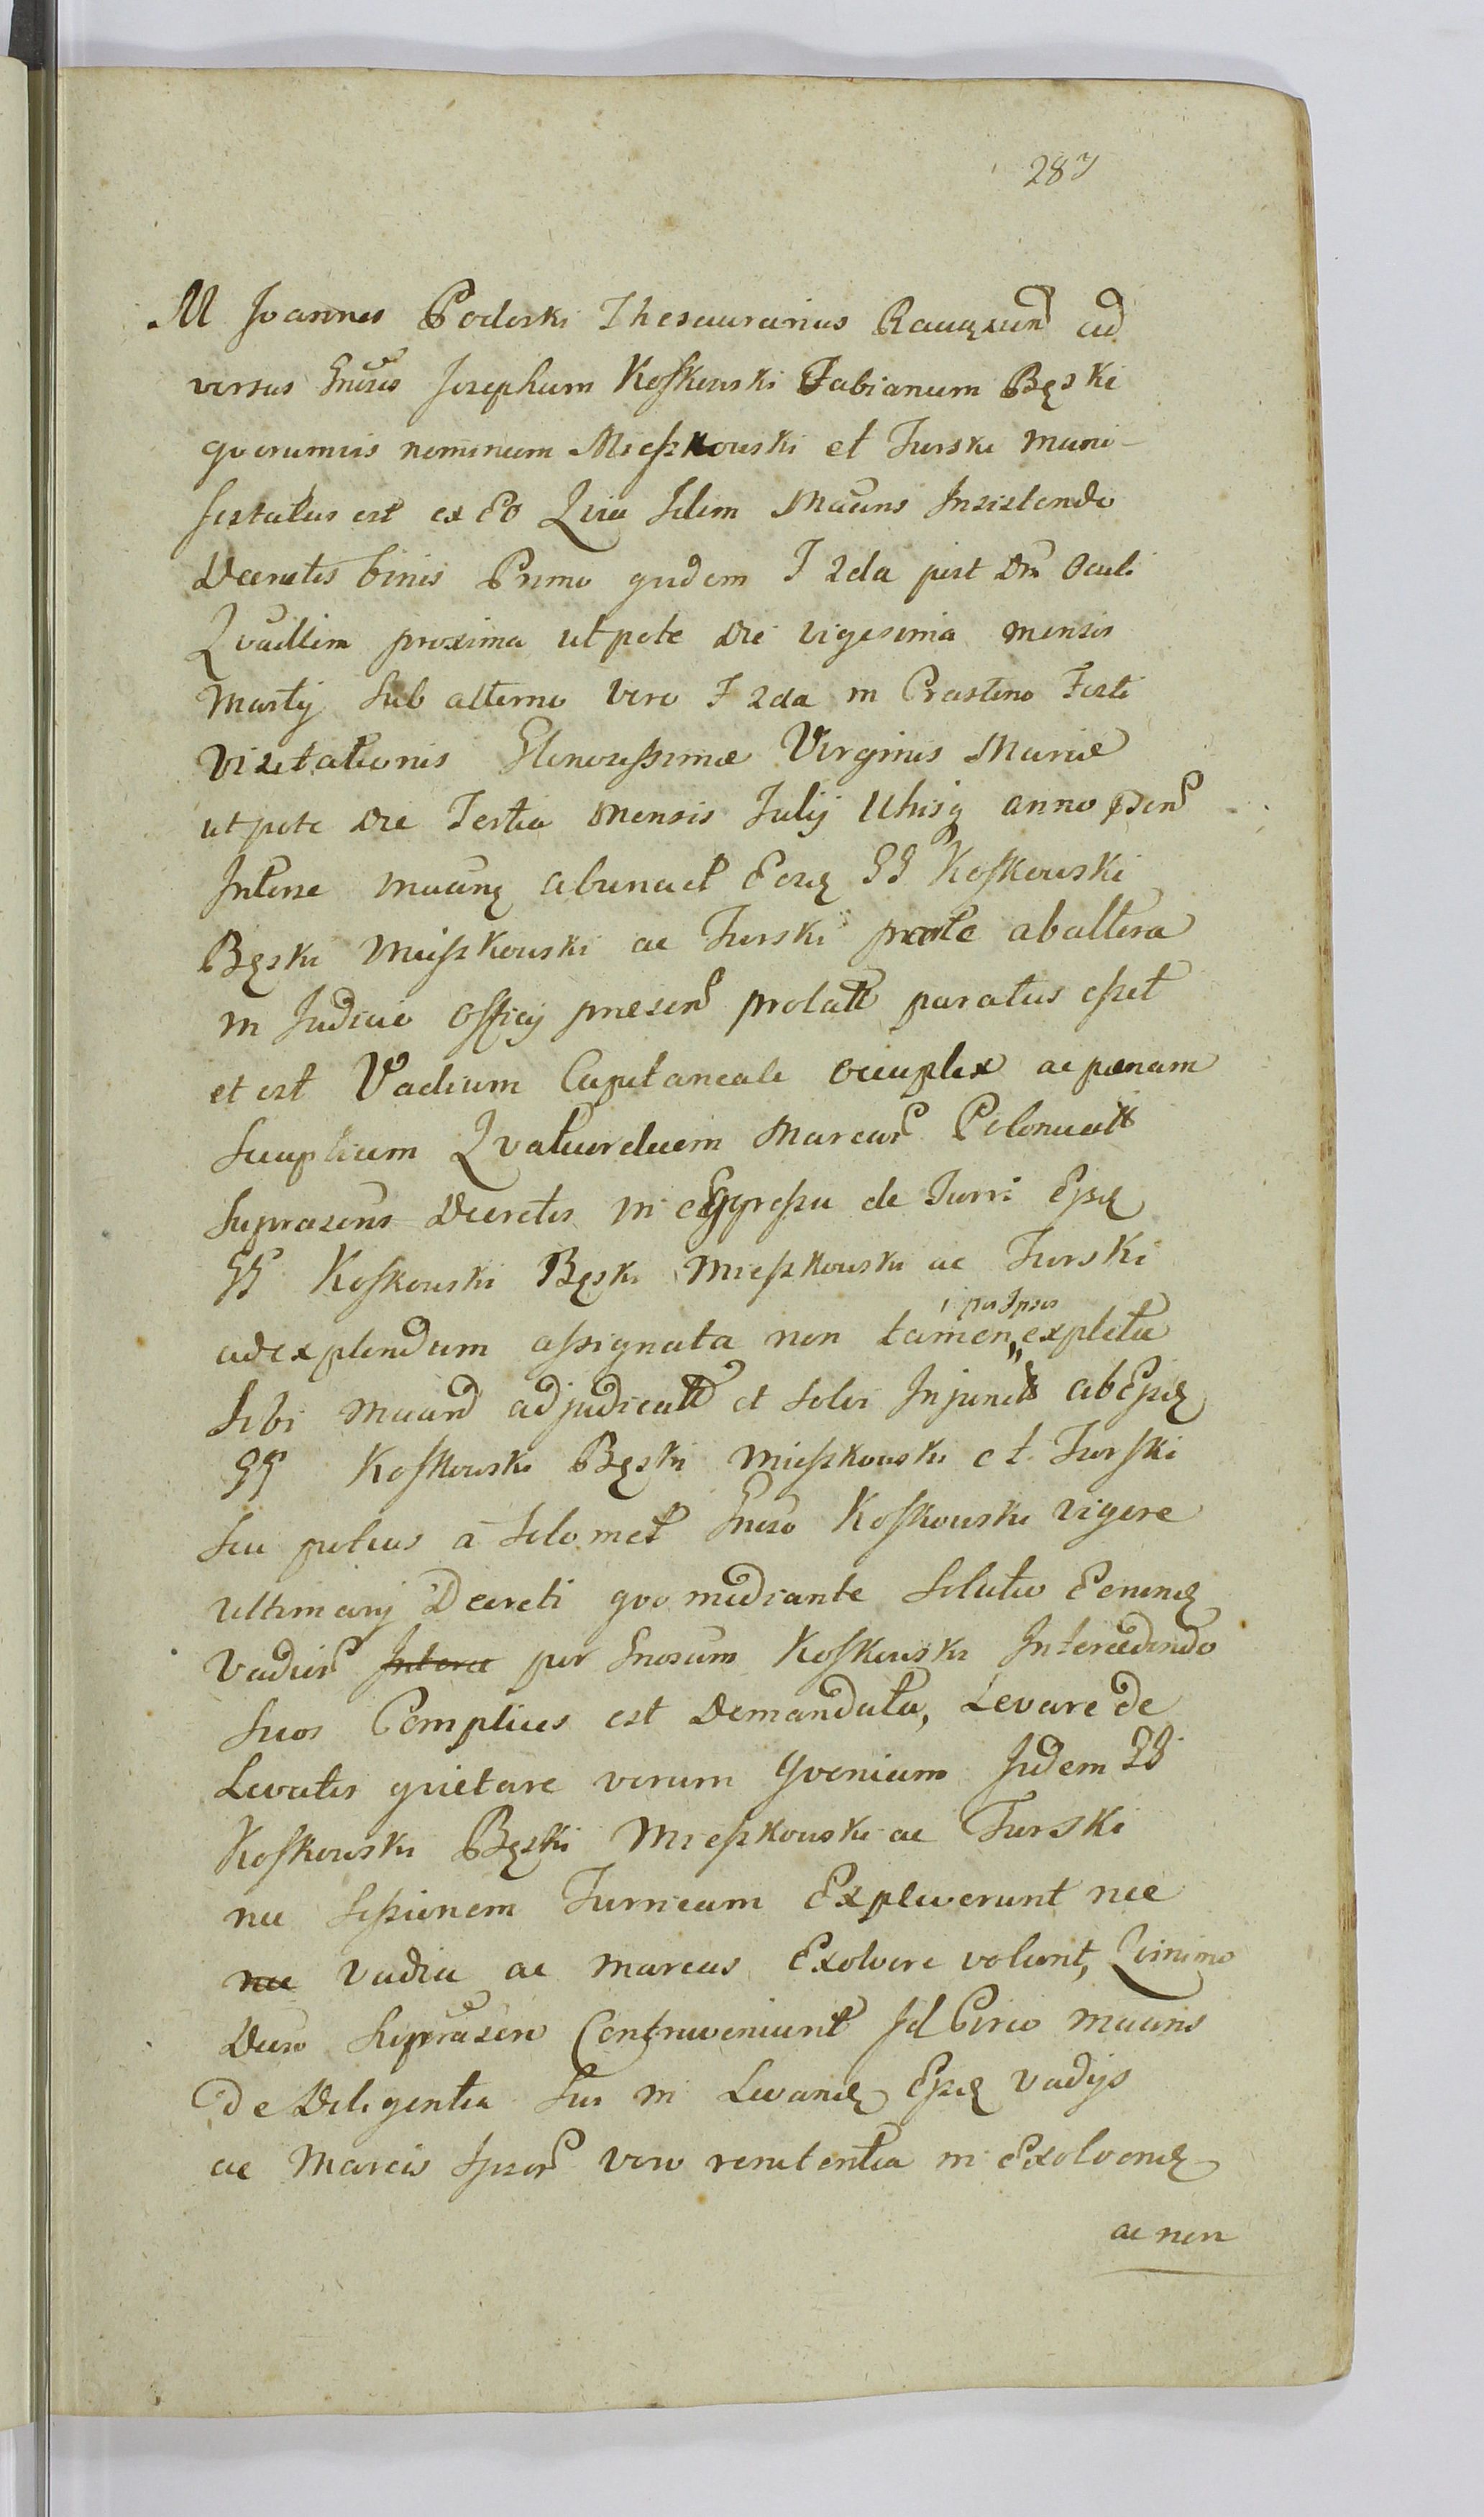 287
M Joannes Poderski Thesaurarius Ravæien ad
versus Gnosos Josephum Koskowski Fabianum Bęski
quorumvis nominum Mieszkowski et Turski mani-
festatus est ex Eo Quia Idem Mācus Insistendo
Decretis binis Primo quidem F 2da post Dm̄ Oculi
proxima utpote die vigesima mensis
Martij Sub altermo vero F 2da in Crastino Festi
Visitationis Gloriosissimæ Virginis Mariæ
utpote die Tertia mensis Julij anno
Inter ab una et Eosdę GG Koskowski
Bęski Mieszkowski ac Turski parte ab altera
in Judicio Officij præsen prolatt paratus esset
et est Vadium Capitaneale ac pænam
Quatuordecim Marcar Polonicatt
Suprasens Decretis in egressu de Turri Epdę
GG Koskowski Bęski Mieszkowski ac Turski
ad explendum assignata non tamen „ per Ipsos expleta
Sibi adjudicatt et Solvi Injunctt ab Epdę
GG Koskowski Bęski Mieszkowski et Turski
Seu potius a Solomet Gnoso Koskowski vigore
ultimarij Decreti quo mediante Solutio Eorundę
Vadior Interce per Gnosum Koskowski Intercedendo
Suos Complices est Demandata, Levare de
Levatis quietare verum quoniam Iidem GG
Koskowski Bęski Mieszkowski ac Turski
nec Sessionem Turrieam Expleverunt nec
nec vadia ac marcas Exolvere volunt, Quinimo
Decro Suprasen Contraveniunt Id Circo
De Diligentia Sui in Levandę Epdę vadijs
ac Marcis Ipsor vero renitentia in Exolvendę
ac non